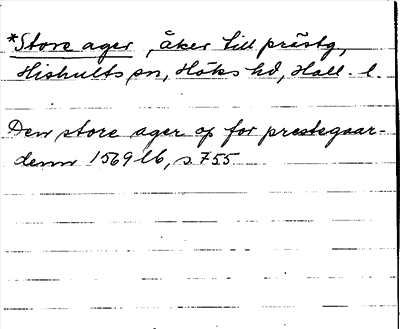 *Store ager, åker till prästg,
Hishults sn, Höks hd, Hall. l.
Den store ager op for prestegaar-
denn 1569 lb, s. 755